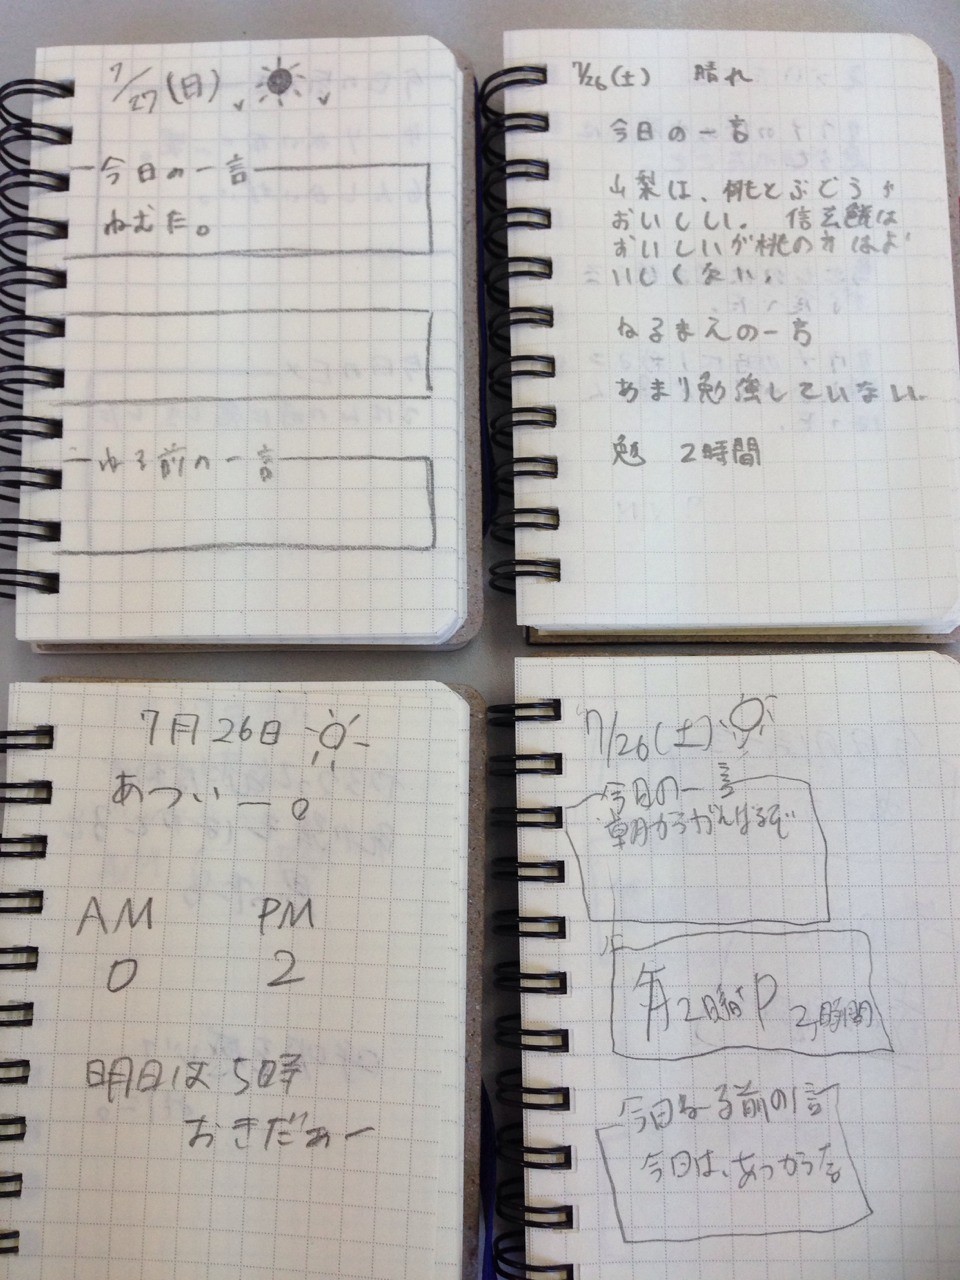 7/27(日)
今日の一言
ねむた。
ねる前の一言
7/26(土) 晴れ
今日の一言
山梨は、桃とぶどうが
おいししい。信玄餅は
おいしいが桃の方はよ
いしくない。
ねるまえの一言
あまり勉強していない。
勉 2時間
7月26日
あついー。
AM PM
0 2
明日は5時
おきだぁー
7/26(土)
今日の一言
朝からがんばるぞ
2時間 P 2時間
今日ねる前の一言
今日は、あつかった